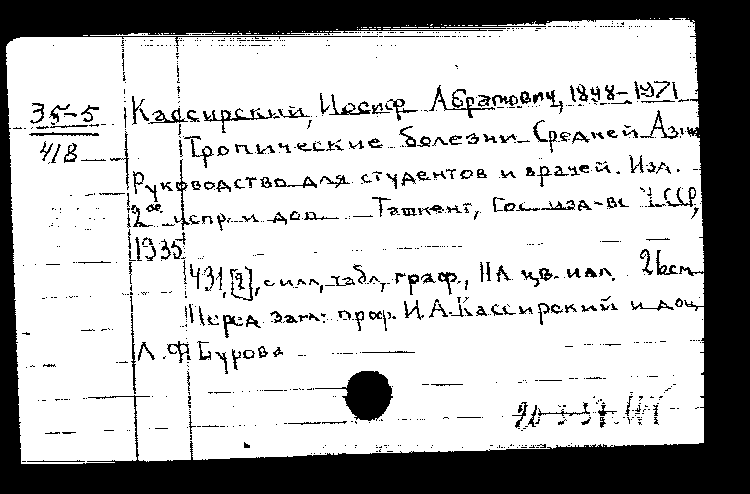 35-5
418
Кассирский, Иосиф Абрамович, 1898-1971
Тропические болезни Средней Азии
Руководство для студентов и врачей. Изд.
2ое испр. и доп. Ташкент, Гос. изд-во УССР,
1935
431, [2], с илл, табл, граф., 11 л. цв. илл. 26 см
Перед загл: проф. И.А. Кассирский и доц
Л.Ф. Бурова